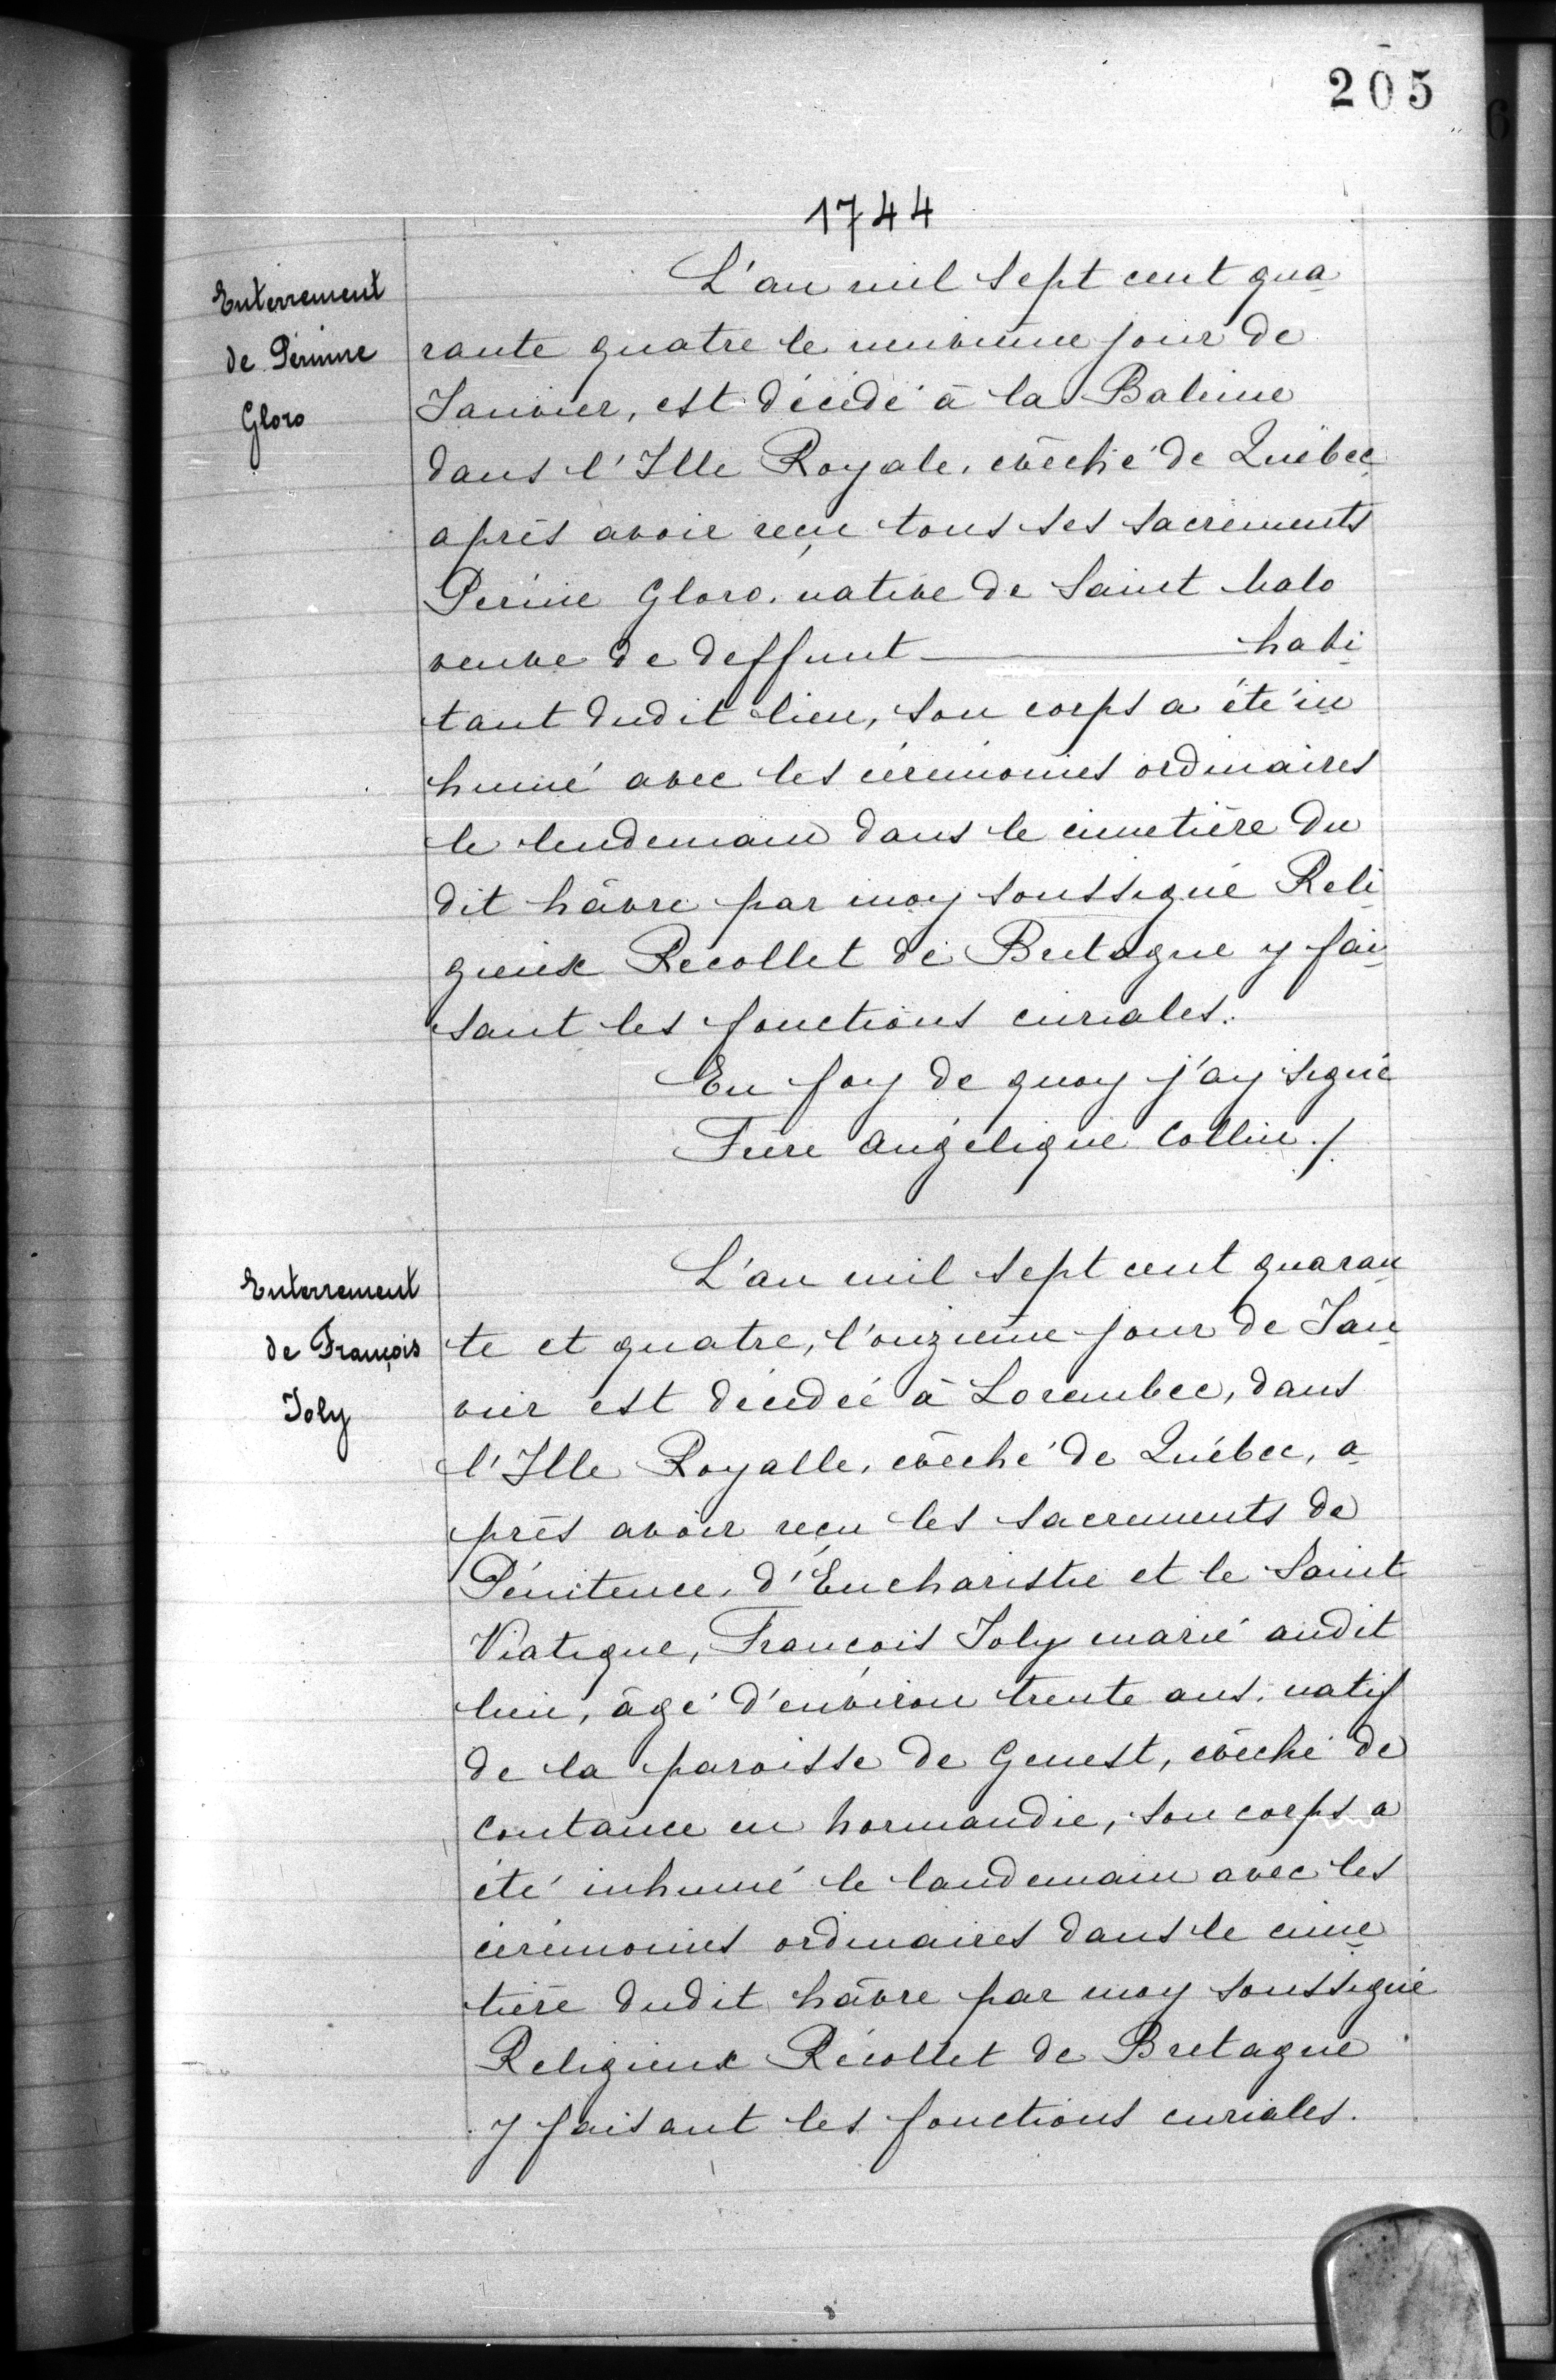 205
1744
Enterrement
de Périnne
Gloro
L'an mil sept cent qua
rante quatre le neuvième jour de
Janvier, est décédé à la Baleine
dans l'Ille Royale, évêché de Québec
après avoir reçu tous ses sacrements
Périne Gloro, native de Saint Malo
veuve de deffunt — habi
tant dudit lieu, son corps a été in
humé avec les cérémonies ordinaires
le lendemain dans le cimetière du
dit hâvre par moy soussigné Reli
gieux Recollet de Bretagne y fai
sant les fonctions curiales.
En foy de quoy j'ay signé
Frère Angélique Collin ./.
Enterrement
de François
Joly
L'an mil sept cent quaran
te et quatre, l'onzième jour de Jan
vier est décédé à Lorembec, dans
l'Ille Royalle, évêché de Québec, a
près avoir reçu les sacrements de
Pénitence, d'Eucharistie et le Saint
Viatique, François Joly marié audit
lieu, âgé d'environ trente ans, natif
de la paroisse de Genest, évêché de
Coutance en Normandie, son corps a
été inhumé le landemain avec les
cérémonies ordinaires dans le cime
tière dudit hâvre par moy soussigné
Religieux Récollet de Bretagne
y faisant les fonctions curiales.